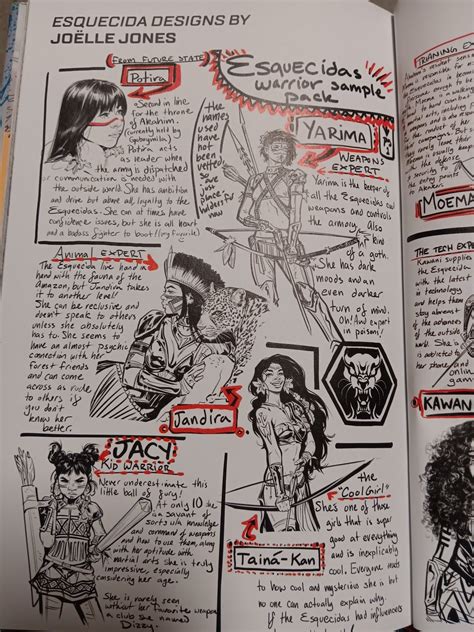 ESQUECIDA DESIGNS BY
JOËLLE JONES
FROM FUTURE STATE
Potira
Second in line
for the throne
of Akahim.
Potira acts
as leader when
the army is dispatched
or communication is needed with
the outside world. She has ambition
and drive but above all, loyalty to the
Esquecidas. She can at times have
confidence issues, but she is all heart
and a badass fighter to boot!
Esquecidas
warrior sample
pack
the
names
used
have
not
been
vetted
so
are
just
place-
holders for
now
YARIMA
WEAPONS
EXPERT
Yarima is the keeper of
all the Esquecidas cool
weapons and controls
the armory. Also
kind
of a goth.
She has dark
moods and an
even darker
turn of mind.
Oh! And expert
in poison!
Animal EXPERT
The Esquecida live hand in
hand with the fauna of the
Amazon, but Jandira takes
it to another level!
She can be reclusive and
doesn't speak to others
unless she absolutely
has to. She seems to
have an almost psychic
connection with her
forest friends
and can come
across as rude
to others if
you don't
know her
better.
Jandira
JACY
KID WARRIOR
Never underestimate this
little ball of fury!
At only 10 she is
a savant of
sorts w/a knowledge
and command of weapons
and how to use them, along
with her aptitude with
martial arts she is truly
impressive, especially
considering her age.
She is rarely seen
without her favourite weapon
a club she named
Dizzy.
Tainá-Kan
the
"Cool Girl"
She's one of those
girls that is super
good at everything
and is inexplicably
cool. Everyone reacts
to how cool and mysterious she is but
no one can actually explain why.
If the Esquecidas had influencers
TRAINING EX
MOEMA
THE TECH EXP
Kawani supplies
the Esquecidas
with the latest
in technology
and helps them
stay abreast
of the advances
of the outside
world. She is
addicted to
her phone and
online
gam
KAWAN